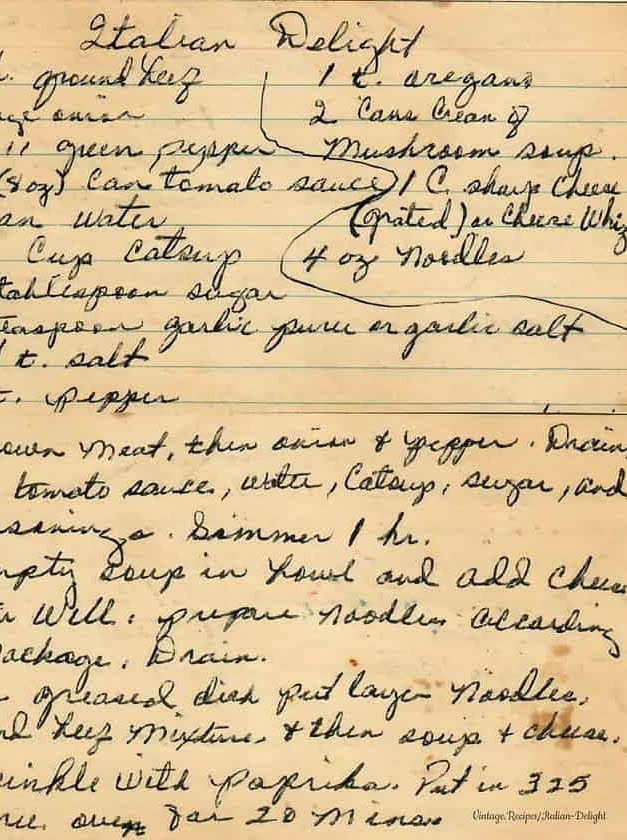 Italian Delight
. ground beef
ge onion
" green pepper
(8 oz) Can tomato sauce
an water
Cup Catsup
tablespoon sugar
teaspoon garlic puree or garlic salt
t. salt
t. pepper
1 t. oregano
2 Cans Crean of
Mushroom soup.
1 C. sharp Cheese
(grated) or Cheese Whiz
4 oz Noodles
own Meat, then onion & pepper. Drain,
tomato sauce, water, Catsup, sugar, and
sonings. Simmer 1 hr.
mpty soup in bowl and add cheese
r Well. prepare Noodles according
ackage. Drain.
greased dish put layer Noodles,
nd beef Mixture, & then soup & cheese.
rinkle with paprika. Put in 325
ree oven for 20 Mins.
Vintage.Recipes/Italian-Delight